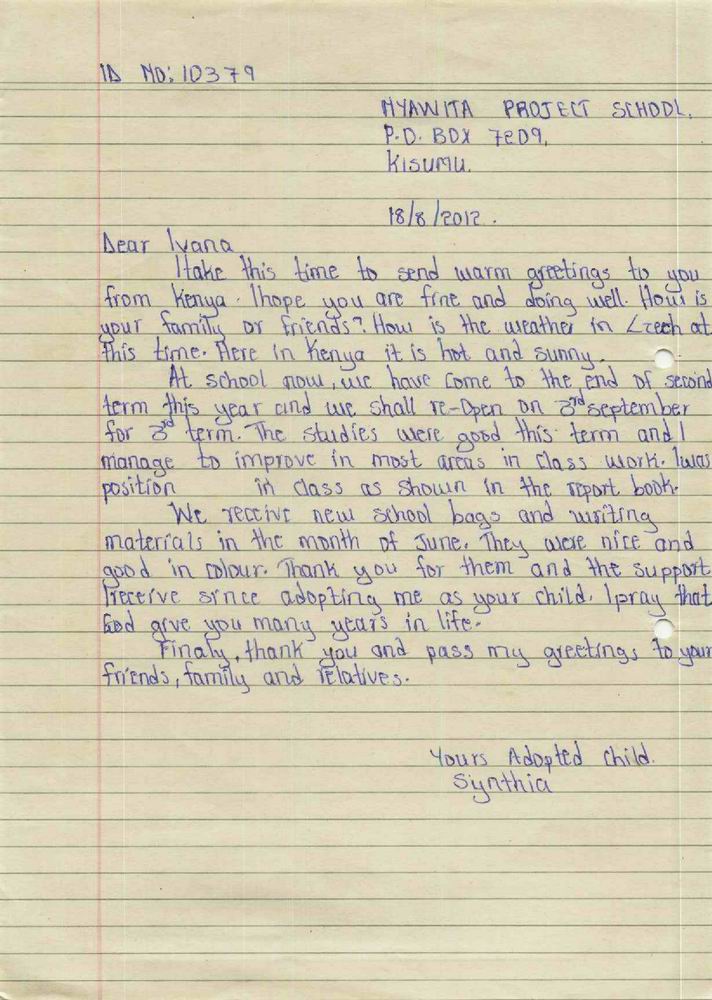 ID NO: 10379
NYAWITA PROJECT SCHOOL.
P.O. BOX 7209,
KISUMU.
18/8/2012.
Dear Ivana
I take this time to send warm greetings to you
from Kenya. I hope you are fine and doing well. How is
your family or friends? How is the weather in Czech at
this time. Here in Kenya it is hot and sunny.
At school now, we have come to the end of second
term this year and we shall re-Open on 3rd september
for 3rd term. The studies were good this term and I
manage to improve in most areas in class work. I was
position in class as shown in the report book.
We receive new school bags and writing
materials in the month of June. They were nice and
good in colour. Thank you for them and the support
I receive since adopting me as your child. I pray that
God give you many years in life.
Finaly, thank you and pass my greetings to your
friends, family and relatives.
Yours Adopted child.
Synthia